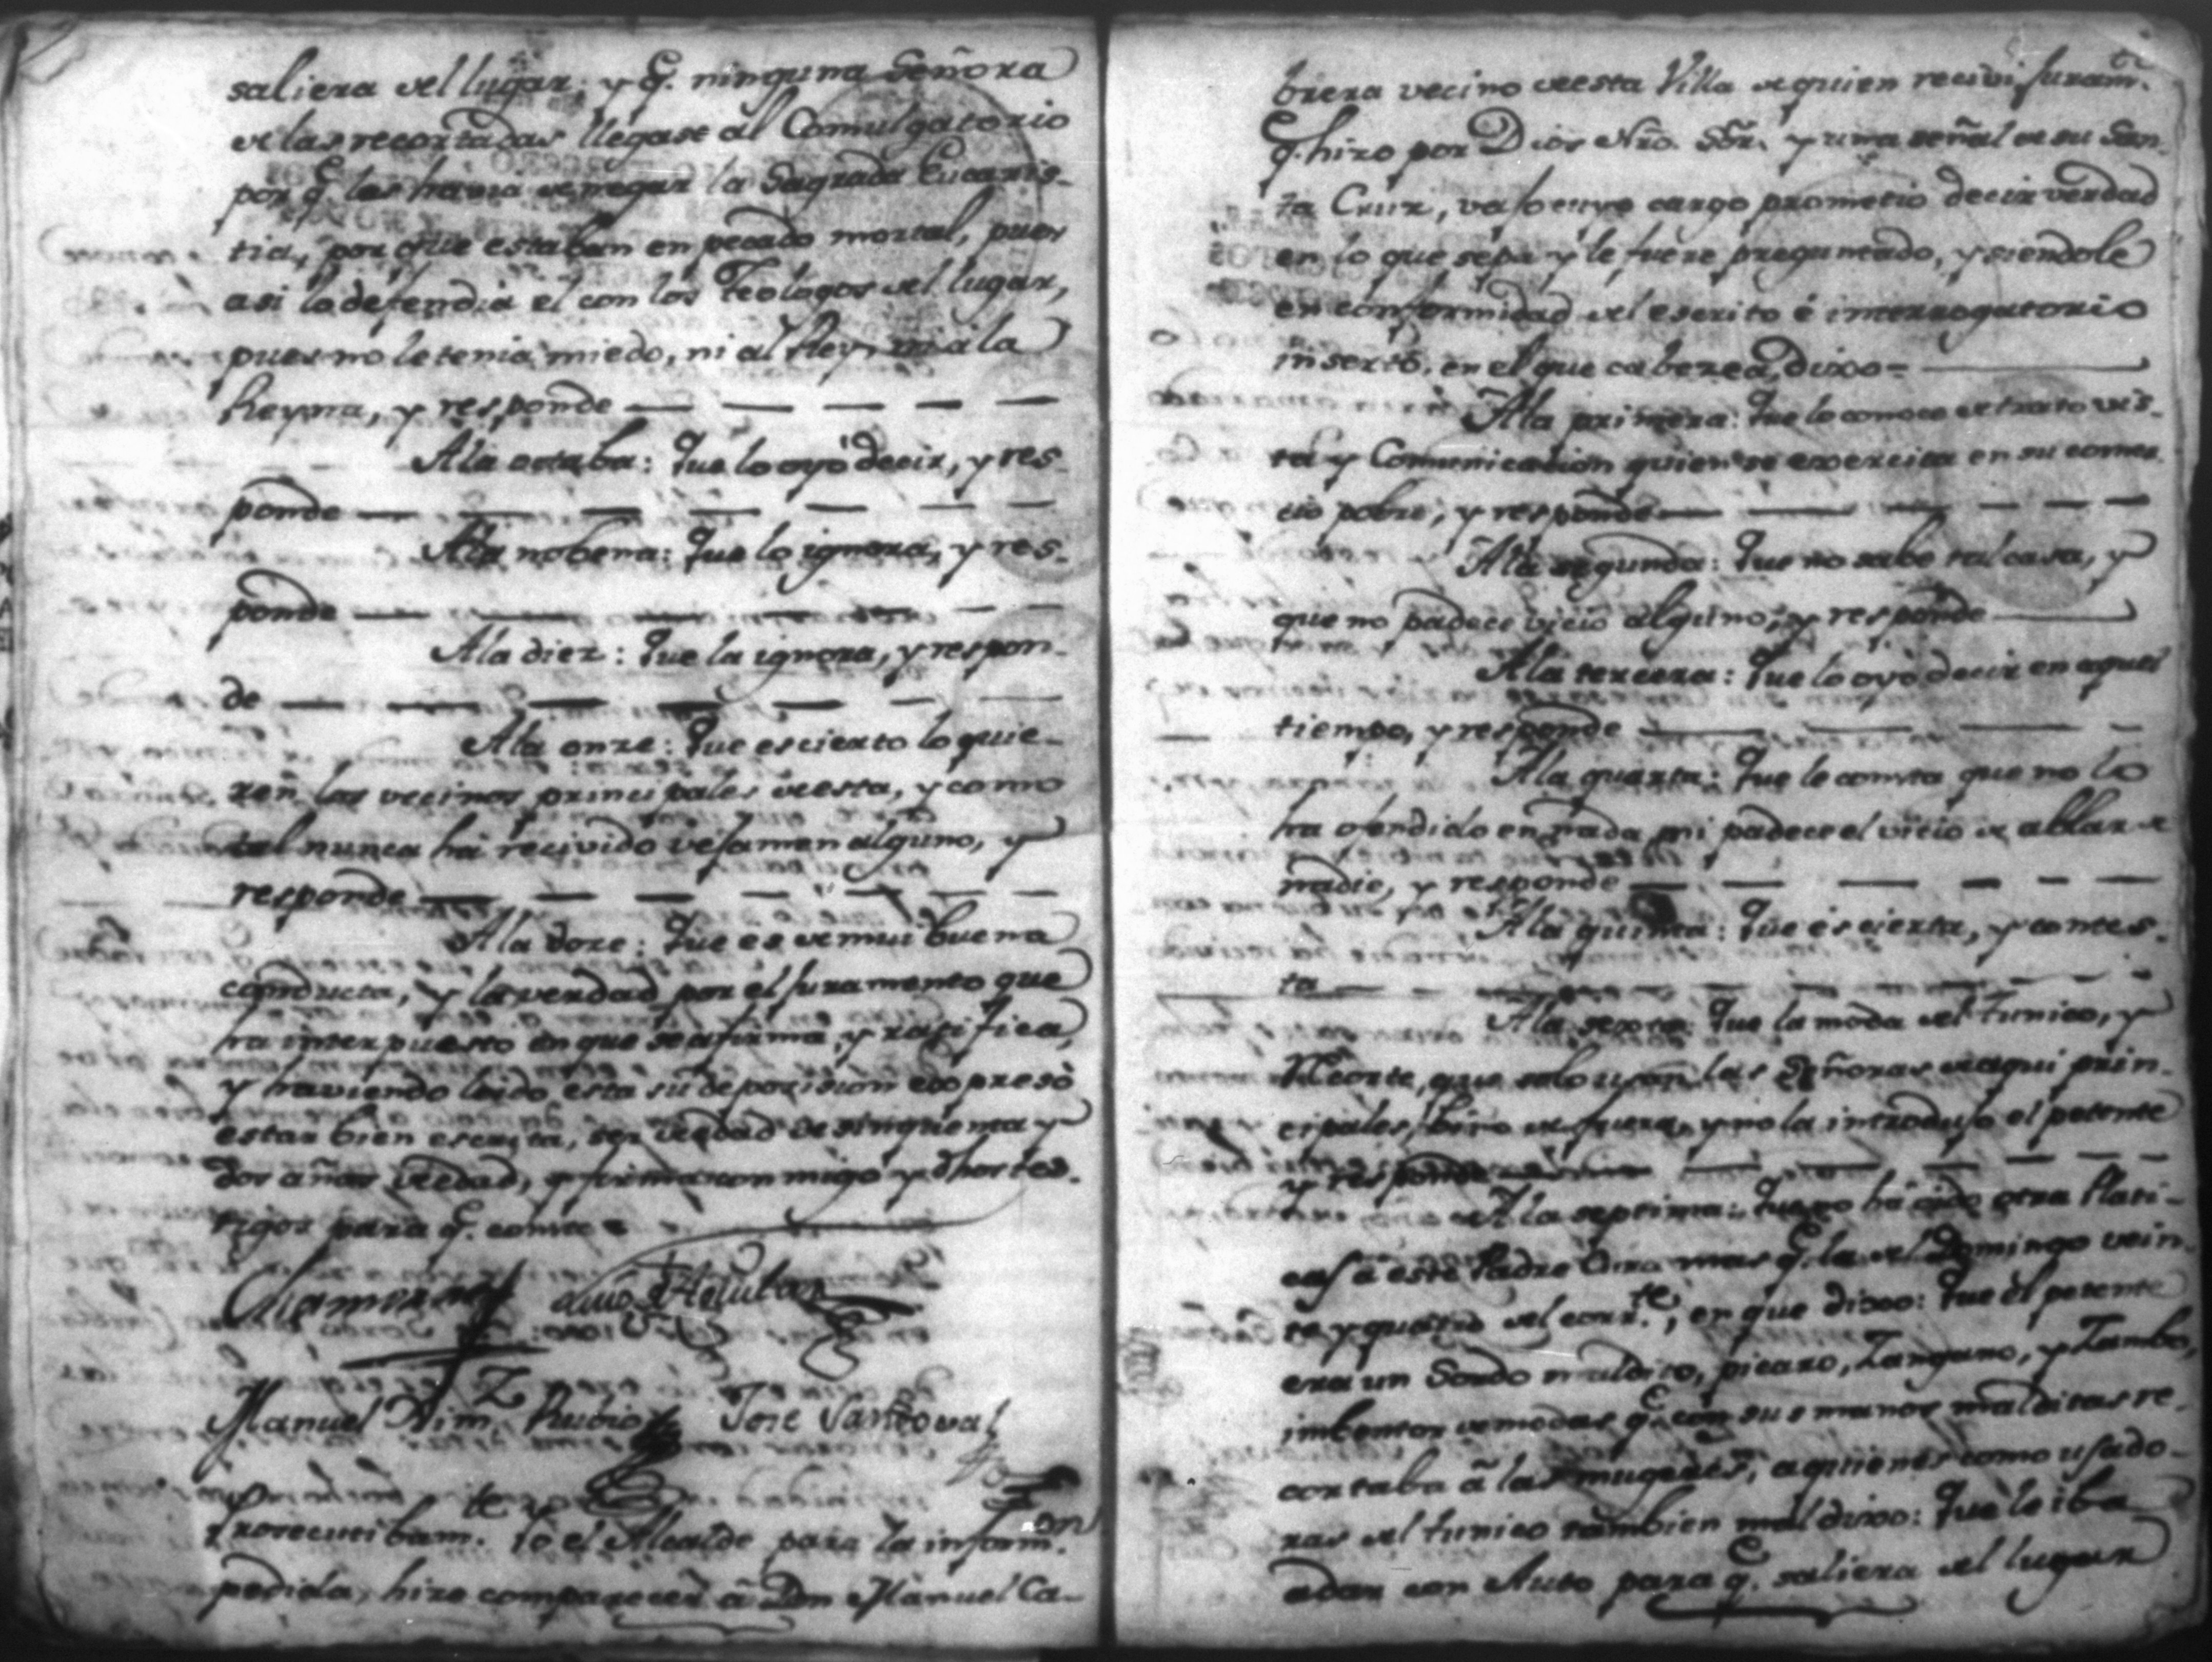 saliera del lugar; y q.e ninguna Señora
de las recortadas llegase al Comulgatorio
por q.e les havia de negar la Sagrada Eucaris-
tia, por que estaban en pecado mortal, pues
asi lo defendia el con los Teologos del lugar,
pues no le tenia miedo, ni al Rey, ni a la
Reyna, y responde
A la octaba: Que lo oyó decir, y res-
ponde
A la nobena: Que lo ignora, y res-
ponde
A la diez: Que la ignora, y respon-
de
A la onze: Que es cierto lo quie-
ren los vecinos principales de esta, y como
tal nunca ha recivido vejamen alguno, y
responde
A la doze: Que es de mui buena
conducta, y la verdad por el juramento que
ha interpuesto en que se afirma, y ratifica,
y haviendo leido esta su deposision expresó
estar bien escrita, ser de edad de sinquenta y
dos años de edad, y firma con migo y dhos tes-
tigos para q.e conste
Manuel Xim.z Rubio José Sandoval
Prosecutibam.te Yo el Alcalde para la inform.on
pedida, hize comparecer á Don Manuel Ca-
brera vecino de esta Villa de quien recivi juram.to
q.e hizo por Dios Nro. Sõr. y una señal de su San-
ta Cruz, vajo cuyo cargo prometio decir verdad
en lo que sepa y le fuere preguntado, y siendole
en conformidad del escrito é interrogatorio
inserto, en el que cabezea, dixo=
A la primera: Que lo conoce de trato vis-
ta y Comunicacion quien se exercita en su comer-
cio pobre, y responde
A la segunda: Que no sabe tal casa, y
que no padece vicio alguno, y responde
A la tercera: Que lo oyó decir en aquel
tiempo, y responde
A la quarta: Que le consta que no lo
ha ofendido en nada ni padece el vicio de ablar de
nadie, y responde
A la quinta: Que es cierta, y contes-
ta
A la sexta: Que la moda del tunico, y
Recorte, que solo usan las Señoras de aqui prin-
cipales, bino de fuera, y no la introdujo el petente
y responde
A la septima: Que no há oido otra Plati-
ca á este Padre Cura mas q.e la del Domingo vein-
te y quatro del corr.te, en que dixo: Que el petente
era un Sordo maldito, picaro, Zangano, y Zambo,
imbentor de modas q.e con sus manos malditas re-
cortaba á las mugeres, a quienes como usado-
ras del tunico tambien maldixo: Que le iba
a dar con Auto para q.e saliera del lugar